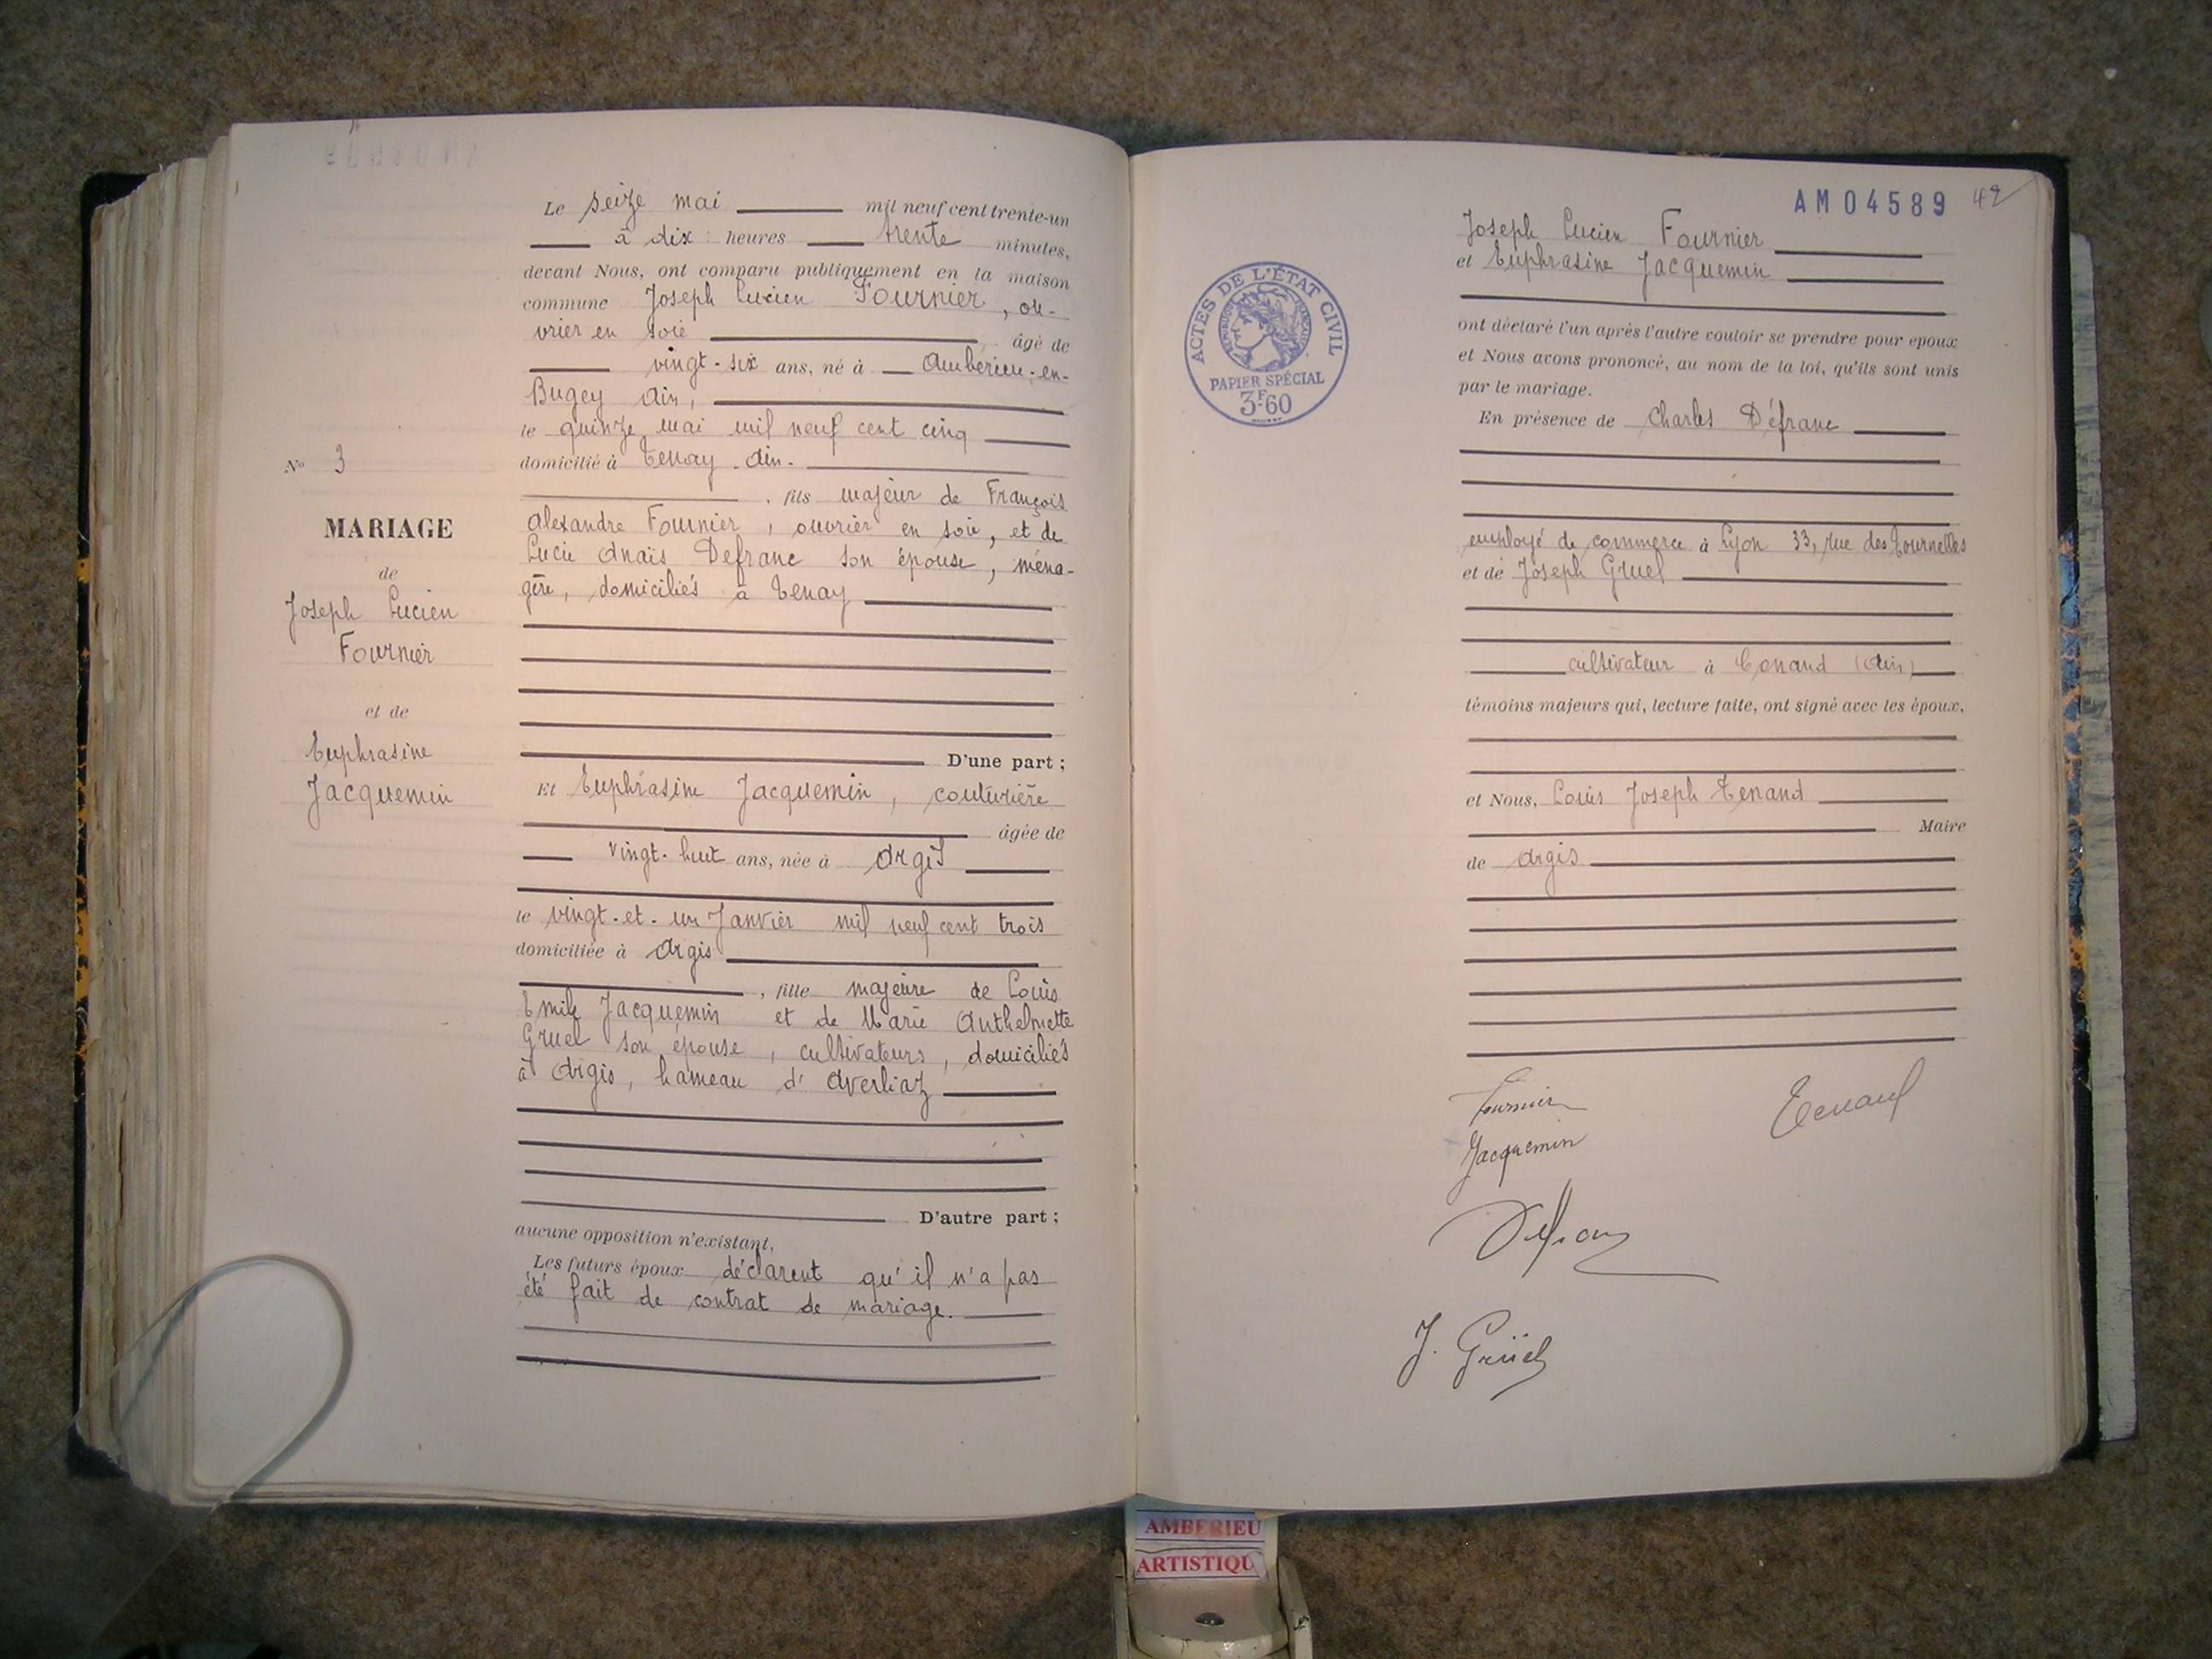 N° 3
MARIAGE
de
Joseph Lucien
Fournier
et de
Euphrasine
Jacquemin
Le seize mai mil neuf cent trente-un
à dix heures trente minutes,
devant Nous, ont comparu publiquement en la maison
commune Joseph Lucien Fournier, ou-
vrier en soie âgé de
vingt-six ans, né à Ambérieu-en-
Bugey Ain,
le quinze mai mil neuf cent cinq
domicilié à Tenay. Ain.
, fils majeur de François
Alexandre Fournier, ouvrier en soie, et de
Lucie Anaïs Defranc son épouse, ména-
gère, domiciliés à Tenay
D'une part ;
Et Euphrasine Jacquemin, couturière
âgée de
vingt-huit ans, née à Argis
le vingt-et-un Janvier mil neuf cent trois
domiciliée à Argis
, fille majeure de Louis
Emile Jacquemin et de Marie Anthelmette
Gruel son épouse, cultivateurs, domiciliés
à Argis, hameau d'Averliaz
D'autre part ;
aucune opposition n'existant,
Les futurs époux déclarent qu'il n'a pas
été fait de contrat de mariage.
AM04589 42
Joseph Lucien Fournier
et Euphrasine Jacquemin
ACTES DE L'ÉTAT CIVIL
RÉPUBLIQUE FRANÇAISE
PAPIER SPÉCIAL
3F.60
ont déclaré l'un après l'autre vouloir se prendre pour époux
et Nous avons prononcé, au nom de la loi, qu'ils sont unis
par le mariage.
En présence de Charles Défranc
employé de commerce à Lyon 33, rue des Tournelles
et de Joseph Gruel
cultivateur à Conand (Ain)
témoins majeurs qui, lecture faite, ont signé avec les époux,
et Nous, Louis Joseph Tenand
Maire
de Argis
Fournier
Tenand
Jacquemin
Defranc
J. Grüel
AMBERIEU
ARTISTIQU